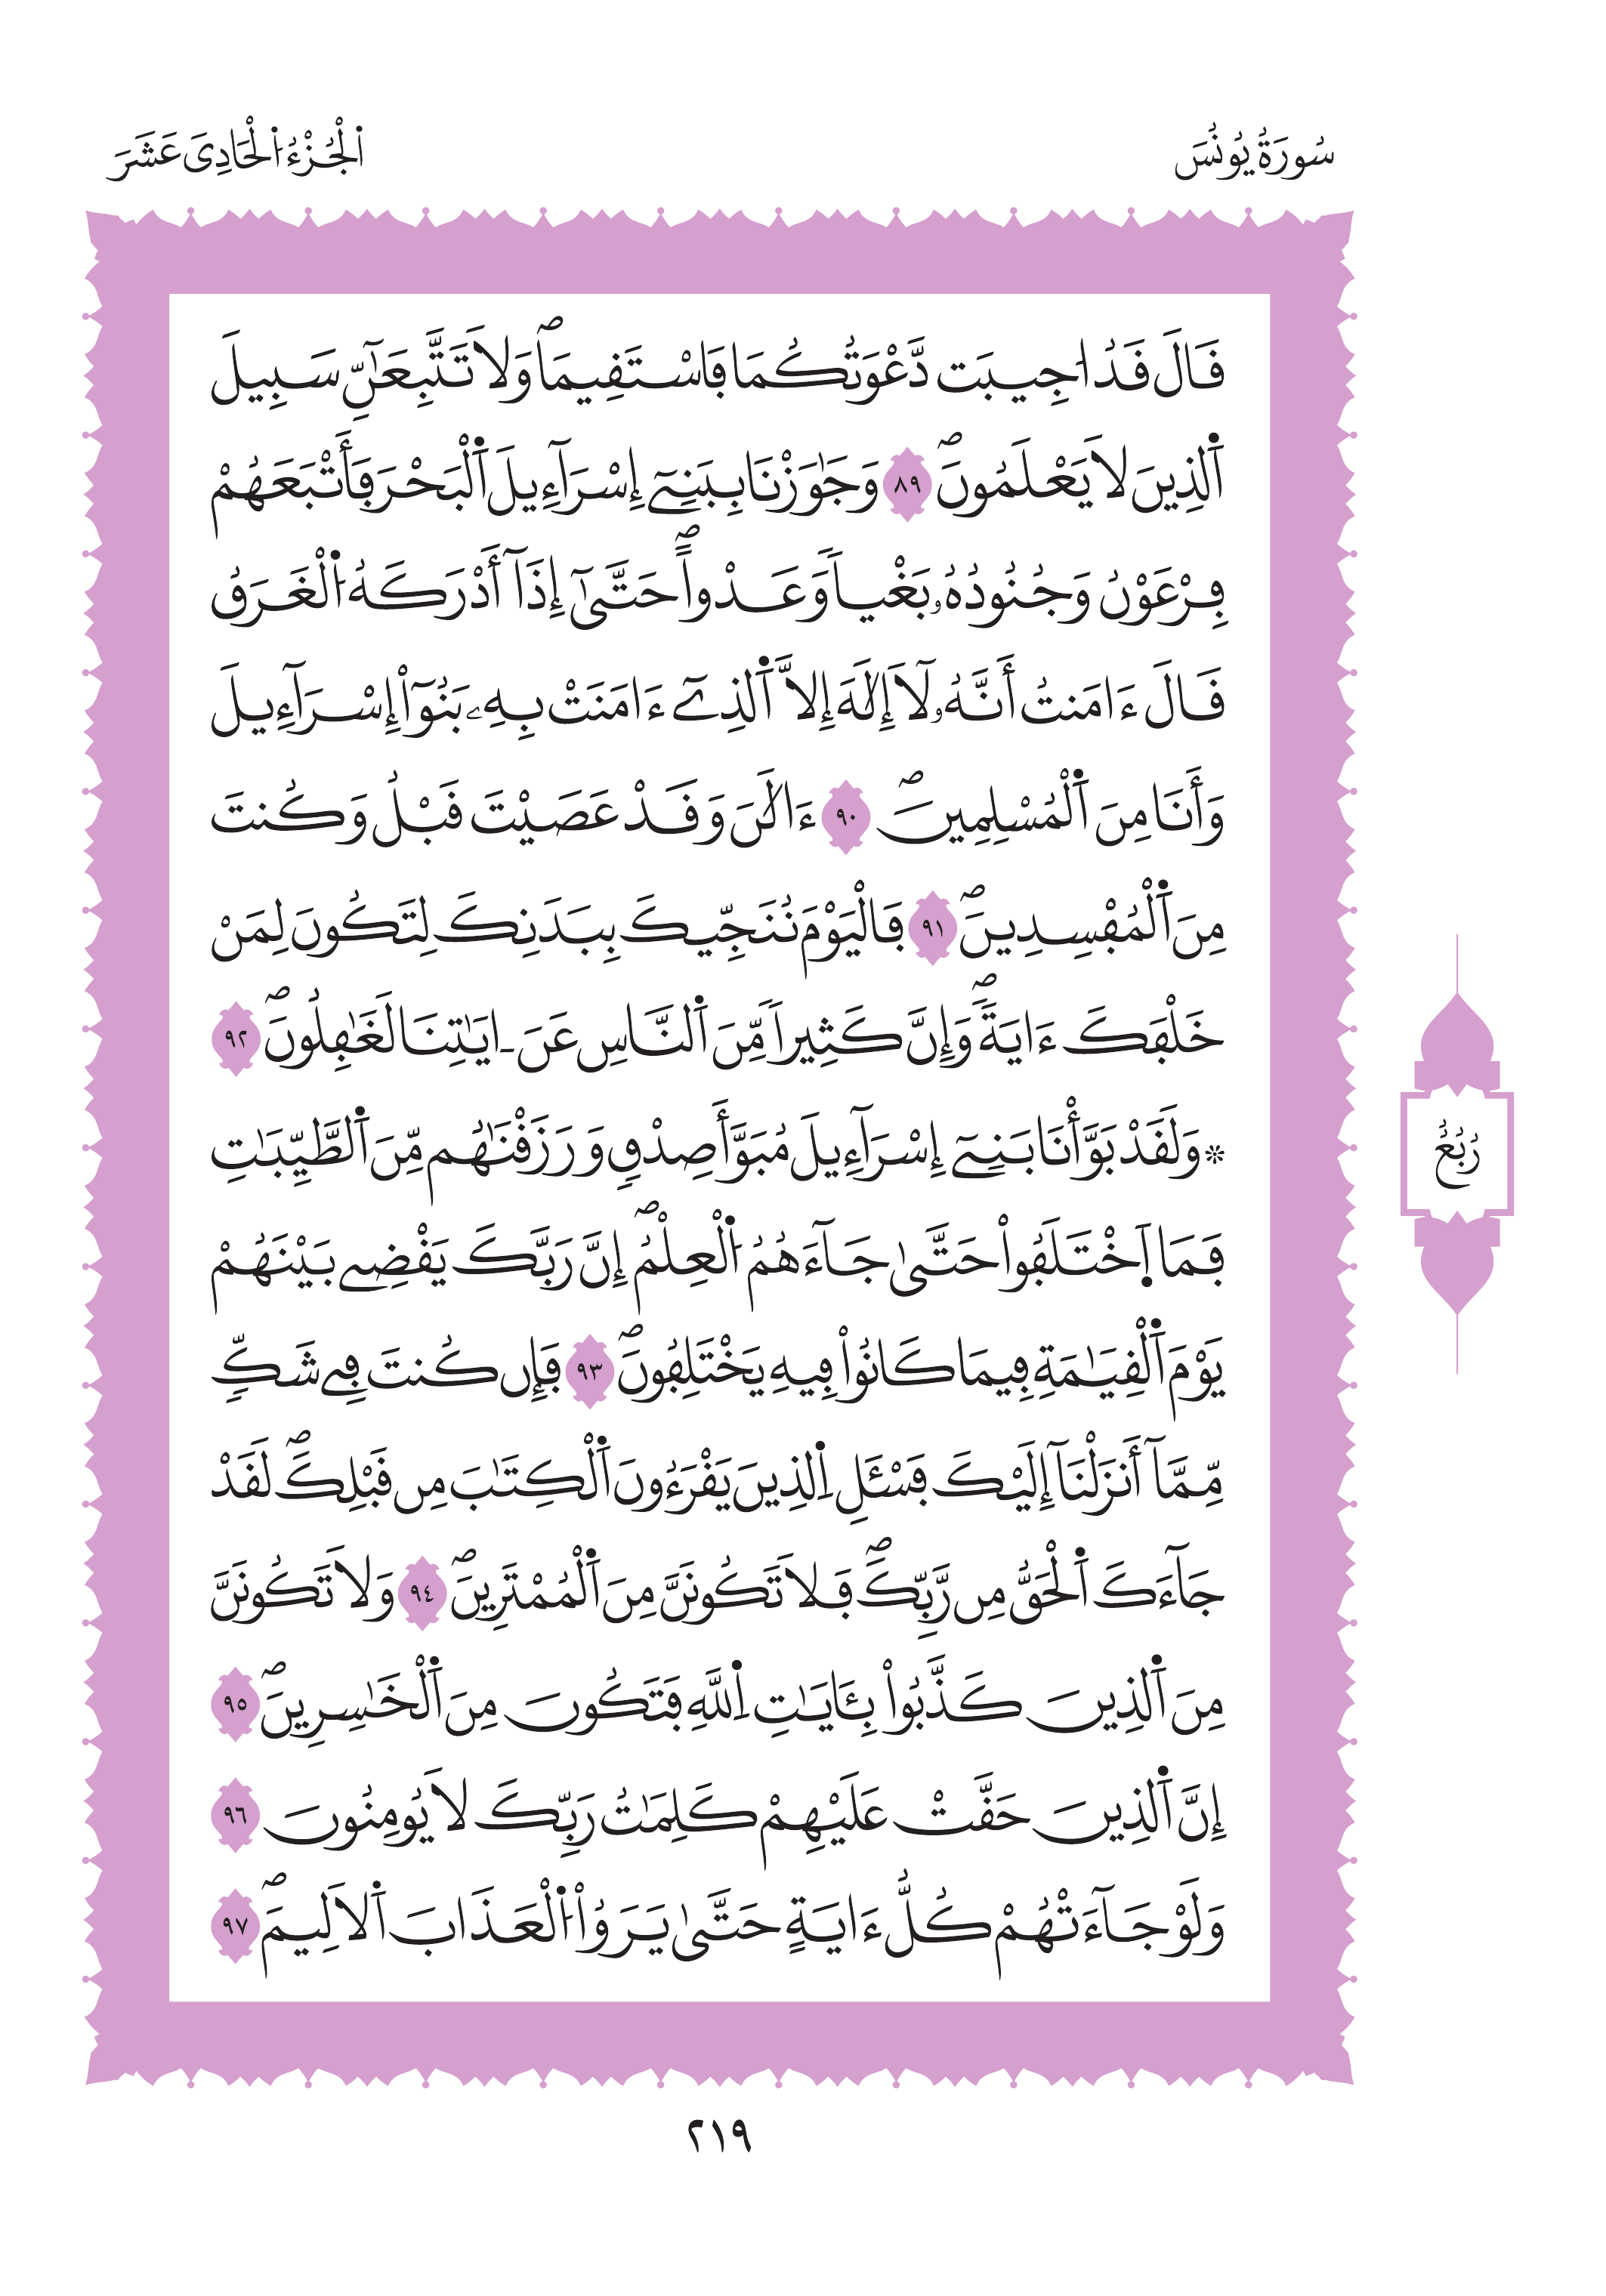 سُورَةُ يُونُسَ
اَ۬لْجُزْءُ اُ۬لْحَادِيَ عَشَرَ
قَالَ قَدُ ا۟جِيبَت دَّعْوَتُكُمَا فَاسْتَقِيمَاۖ وَلَا تَتَّبِعَٰٓنِّ سَبِيلَ
اَ۬لذِينَ لَا يَعْلَمُونَۖ ٨٩ وَجَٰوَزْنَا بِبَنِےٓ إِسْرَآءِيلَ اَ۬لْبَحْرَ فَأَتْبَعَهُمْ
فِرْعَوْنُ وَجُنُودُهُۥ بَغْياٗ وَعَدْواًۖ حَتَّىٰٓ إِذَآ أَدْرَكَهُ اُ۬لْغَرَقُ
قَالَ ءَامَنتُ أَنَّهُۥ لَآ إِلَٰهَ إِلَّا اَ۬لذِےٓ ءَامَنَتْ بِهِۦ بَنُوٓاْ إِسْرَآءِيلَ
وَأَنَا مِنَ اَ۬لْمُسْلِمِينَۖ ٩٠ ءَالَٰنَ وَقَدْ عَصَيْتَ قَبْلُ وَكُنتَ
مِنَ اَ۬لْمُفْسِدِينَۖ ٩١ فَالْيَوْمَ نُنَجِّيكَ بِبَدَنِكَ لِتَكُونَ لِمَنْ
خَلْفَكَ ءَايَةٗۖ وَإِنَّ كَثِيراٗ مِّنَ اَ۬لنَّاسِ عَنَ ـ ايَٰتِنَا لَغَٰفِلُونَۖ ٩٢
۞ وَلَقَدْ بَوَّأْنَا بَنِےٓ إِسْرَآءِيلَ مُبَوَّأَ صِدْقٖ وَرَزَقْنَٰهُم مِّنَ اَ۬لطَّيِّبَٰتِ
فَمَا اَ۪خْتَلَفُواْ حَتَّىٰ جَآءَهُمُ اُ۬لْعِلْمُۖ إِنَّ رَبَّكَ يَقْضِے بَيْنَهُمْ
يَوْمَ اَ۬لْقِيَٰمَةِ فِيمَا كَانُواْ فِيهِ يَخْتَلِفُونَۖ ٩٣ فَإِن كُنتَ فِے شَكّٖ
مِّمَّآ أَنزَلْنَآ إِلَيْكَ فَسْـَٔلِ اِ۬لذِينَ يَقْرَءُونَ اَ۬لْكِتَٰبَ مِن قَبْلِكَۖ لَقَدْ
جَآءَكَ اَ۬لْحَقُّ مِن رَّبِّكَۖ فَلَا تَكُونَنَّ مِنَ اَ۬لْمُمْتَرِينَۖ ٩٤ وَلَا تَكُونَنَّ
مِنَ اَ۬لذِينَ كَذَّبُواْ بِـَٔايَٰتِ اِ۬للَّهِ فَتَكُونَ مِنَ اَ۬لْخَٰسِرِينَۖ ٩٥
إِنَّ اَ۬لذِينَ حَقَّتْ عَلَيْهِمْ كَلِمَٰتُ رَبِّكَ لَا يُومِنُونَ ٩٦
وَلَوْ جَآءَتْهُمْ كُلُّ ءَايَةٍ حَتَّىٰ يَرَوُاْ اُ۬لْعَذَابَ اَ۬لَالِيمَۖ ٩٧
رُبُعُ
٢١٩